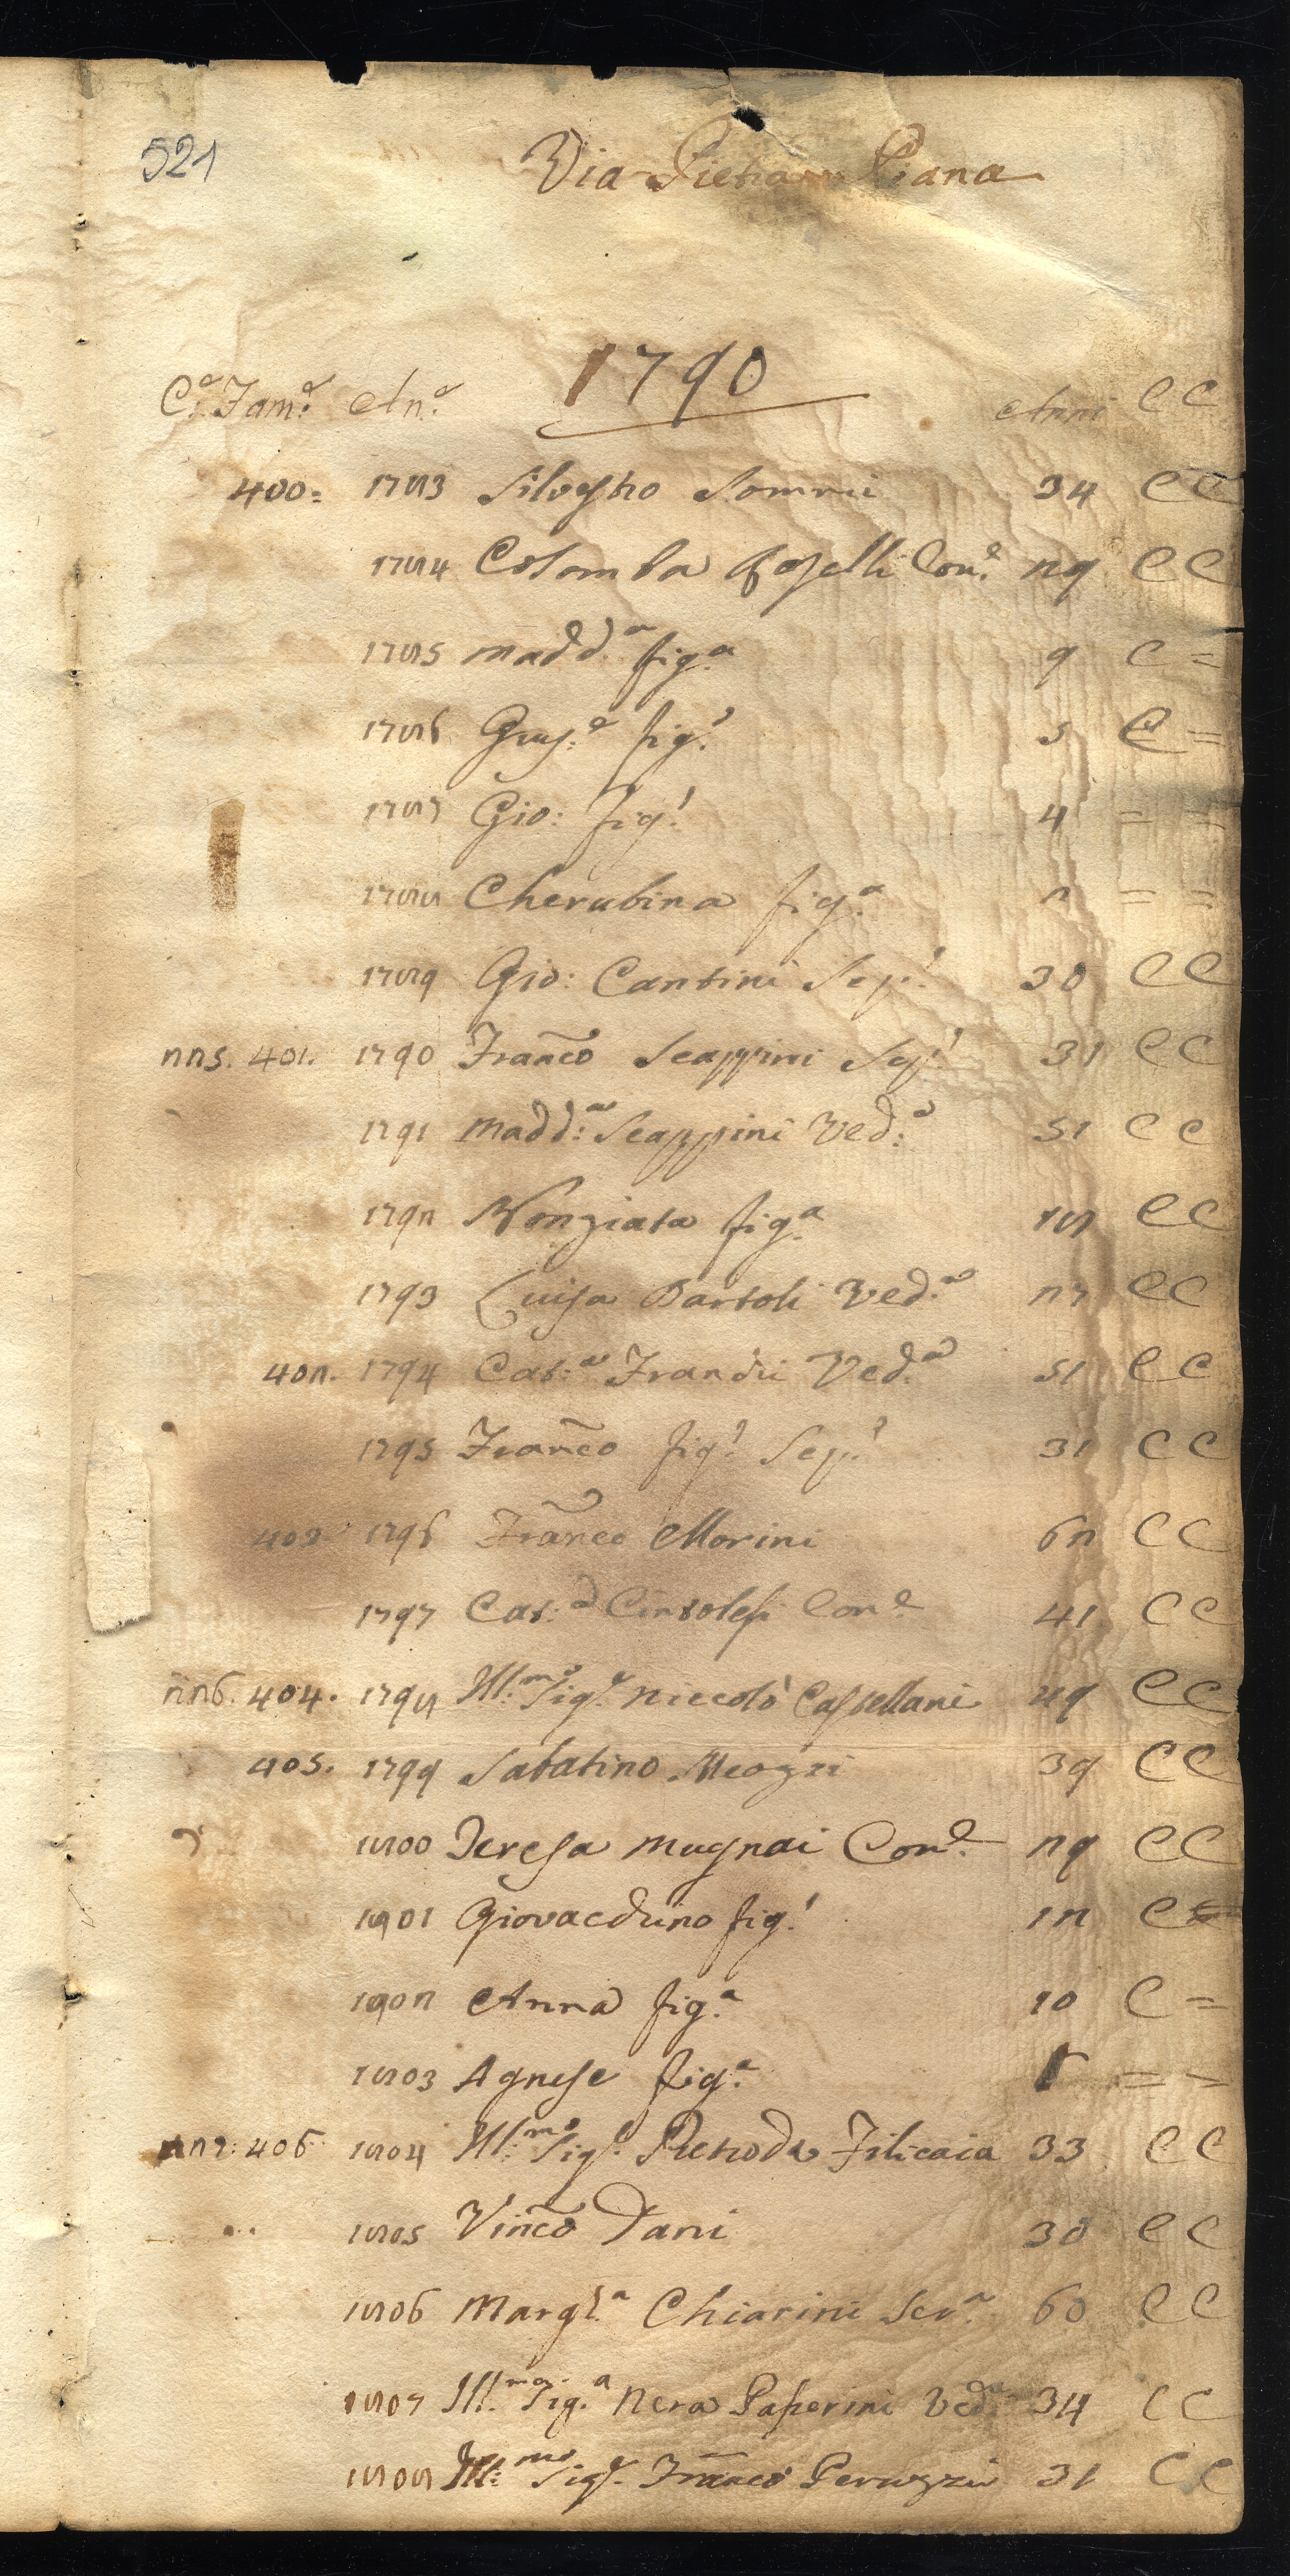 521
Via Pietra Piana
1790
C.e Fam.e An.e Anni CC
400= 1783 Silvestro Sommii 34 CC
1784 Colomba Roselli Con.e 29 CC
1785 Madd.a fig.a 9 C =
1786 Gius.e fig.o 5 C =
1787 Gio: fig.o 4 = =
1788 Cherubina fig.a 2 = =
1789 Gio: Cantini Sep.o 30 CC
225. 401. 1790 Franco Scappini Sep.o 31 CC
1791 Madd:a Scappini Ved:a 51 CC
1792 Nonziata fig.a 18 CC
1793 Luisa Bartoli Ved.a 27 CC
402. 1794 Cat:a Franchi Ved.a 51 CC
1795 Franco fig.o Sep.o 31 CC
403 1796 Franco Morini 62 CC
1797 Cat:a Cintolesi Con.e 41 CC
226. 404. 1798 Ill:mo Sig.e Niccolò Castellani 49 CC
405. 1799 Sabatino Meozzi 39 CC
1800 Teresa Mugnai Con.e 29 CC
1801 Giovacchino fig.o 12 C=
1802 Anna fig.a 10 C =
1803 Agnese fig.a = =
227: 406 1804 Ill:mo Sig.e Pietro da Filicaia 33 CC
1805 Vinco Dani 30 CC
1806 Margh.a Chiarini Ser.a 60 CC
1807 Ill.ma Sig.a Nera Paperini Ved.a 34 CC
1808 Ill:mo Sig.e Franco Peruzzi 31 CC